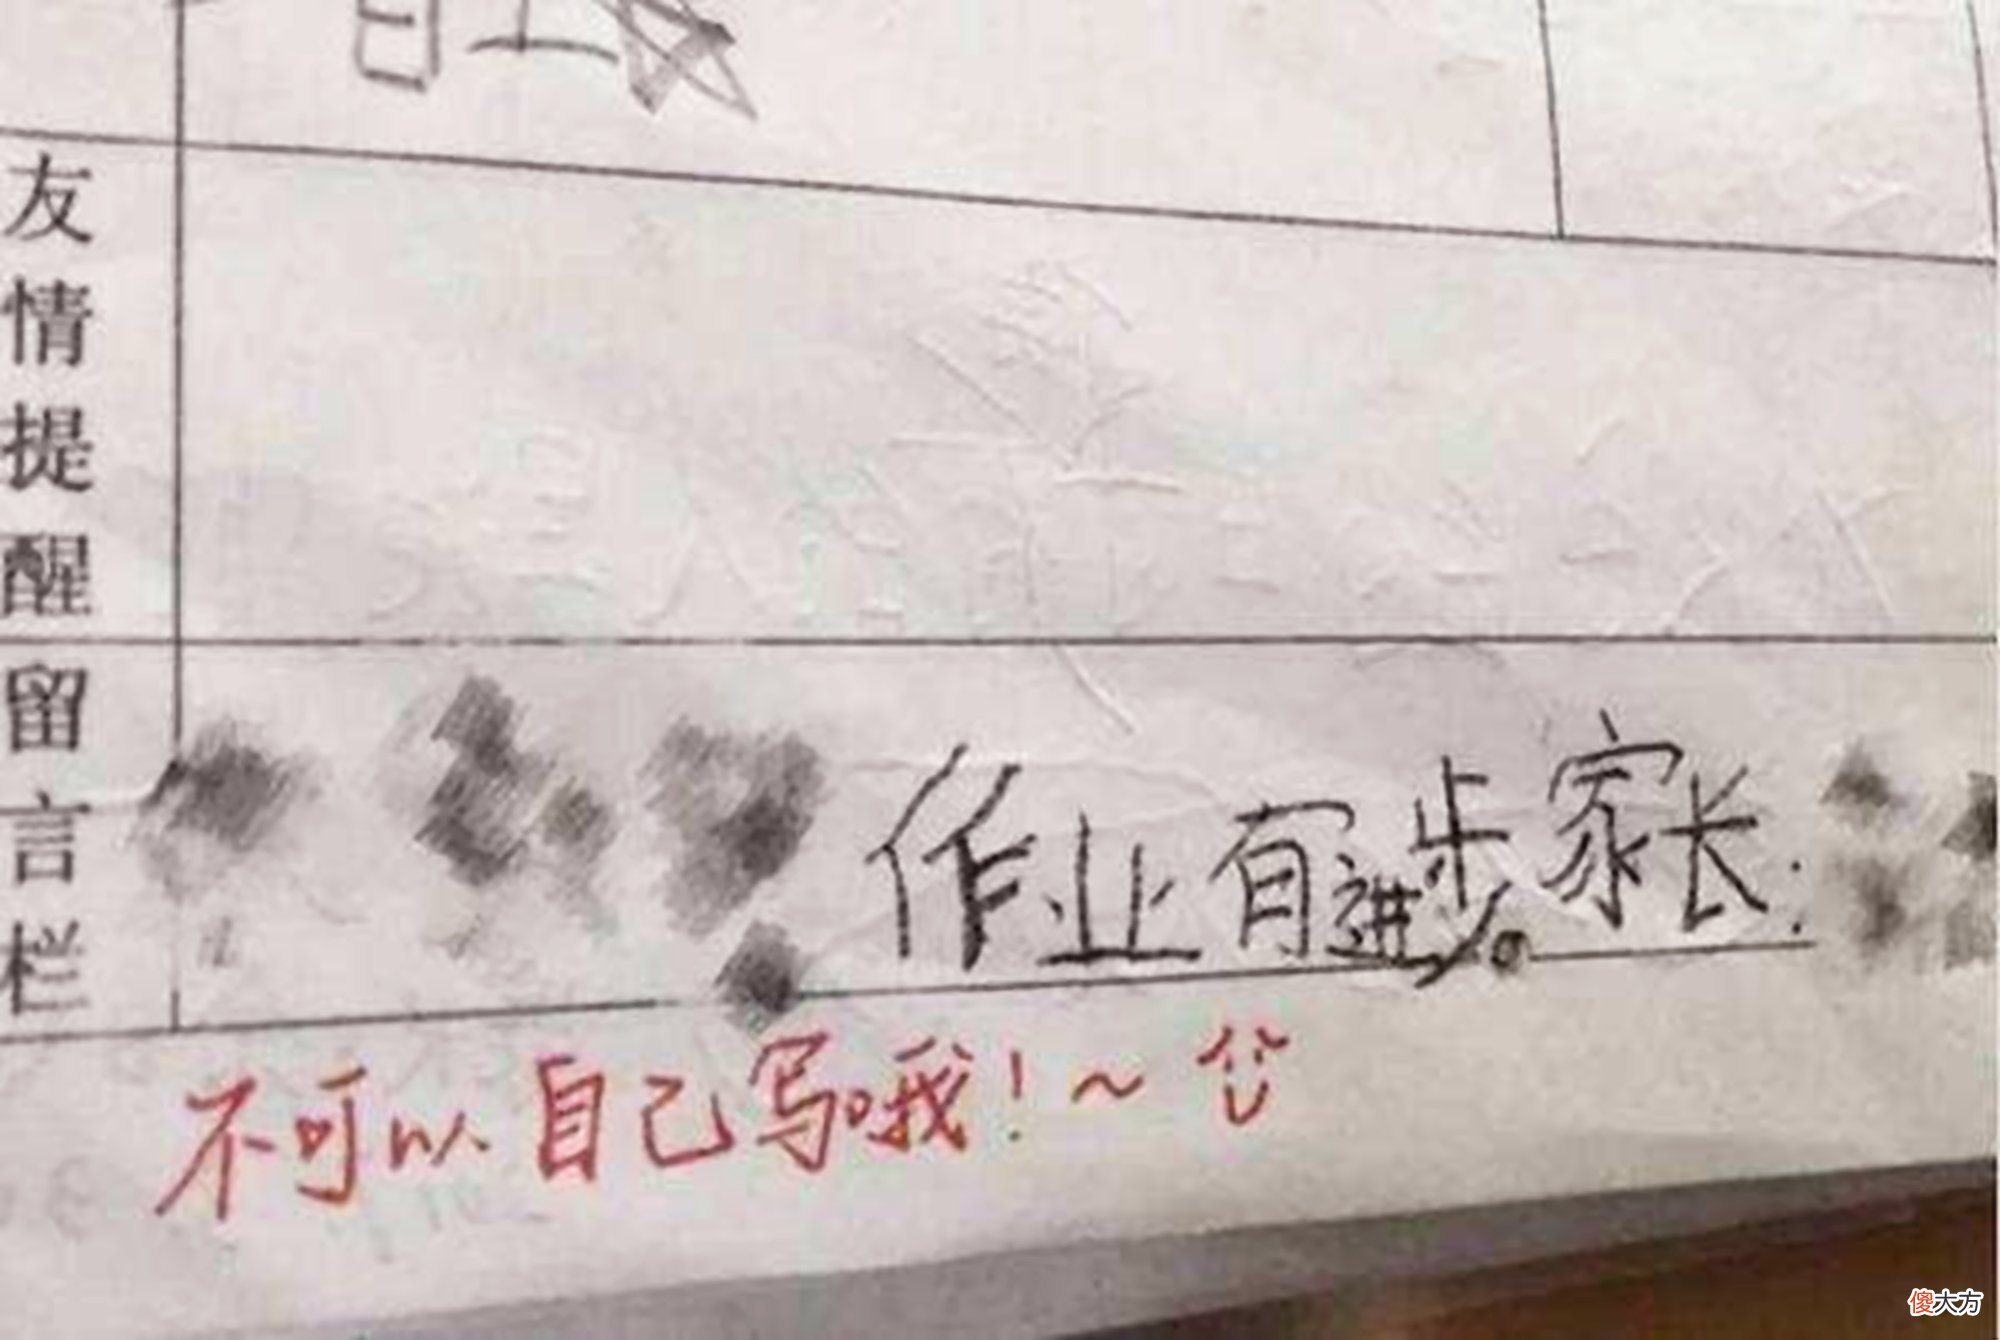 友情提醒
留言栏
作业有进步。家长:
不可以自己写哦!~
傻大方